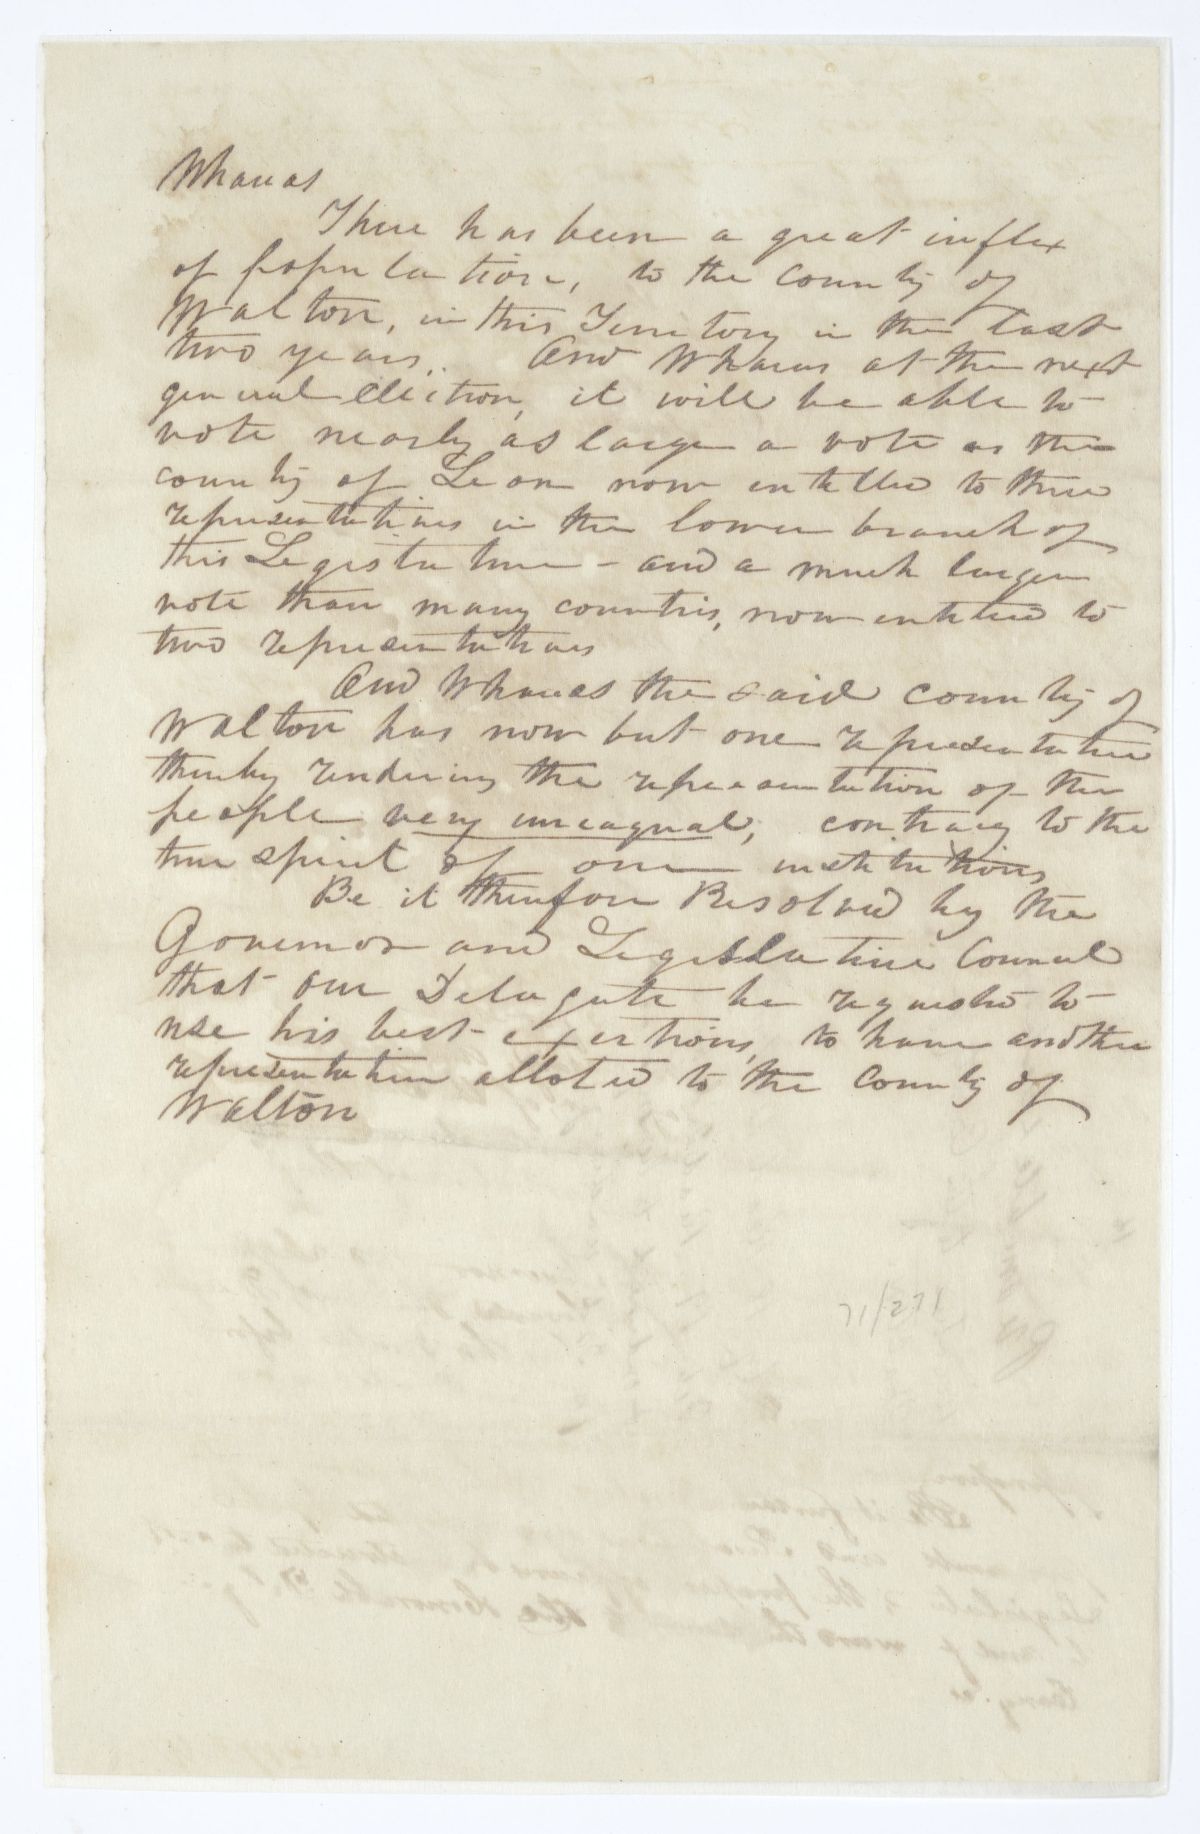 Whereas
There has been a great influx
of population, to the County of
Walton, in this Territory in the last
two years. And Whereas at the next
general Election, it will be able to
vote nearly as large a vote as the
county of Leon now entitled to three
representatives in the lower branch of
this Legislature - and a much larger
vote than many counties, now entitled to
two representatives
And Whereas the said county of
Walton has now but one representative
thereby rendering the representation of the
people very uneaqual, contrary to the
true spirit of our institutions
Be it therefore Resolved by the
Governor and Legislative Council
that our Delegate be requested to
use his best exertions, to have another
representative alloted to the County of
Walton
71/271